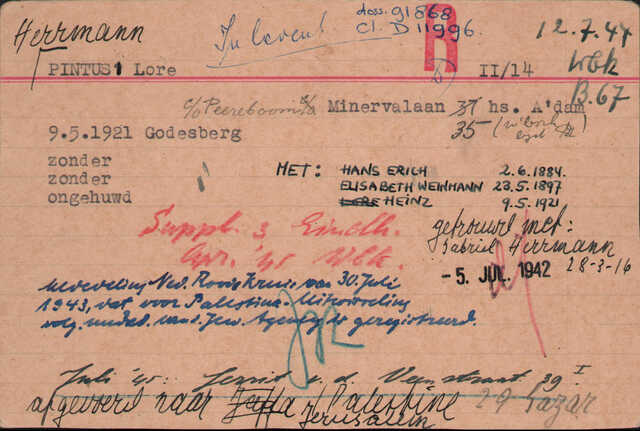 Herrmann
In leven!
doss. 91868
Cl. D 11996.
R
12.7.44
Wbk
B.67
PINTUS Lore
II/14
c/o Peereboom Minervalaan 37 hs. A'dam
35
9.5.1921 Godesberg
zonder
zonder
ongehuwd
MET: HANS ERICH 2.6.1884.
ELISABETH WEINMANN 23.5.1897
LORE HEINZ 9.5.1921
getrouwd met:
Gabriel Herrmann
28-3-16
Suppl. 3 Eindh.
Apr. '45 Wbk.
- 5 JUL 1942
Mededeling Ned. Roode Kruis van 30 Juli
1943, dat voor Palestina-uitwisseling
volg. meded. van Jew. Agency is geregistreerd.
Juli '45: Gerrit v. d. Veenstraat 39 I
afgevoerd naar Jaffa / Palestine 29
Jerusalem